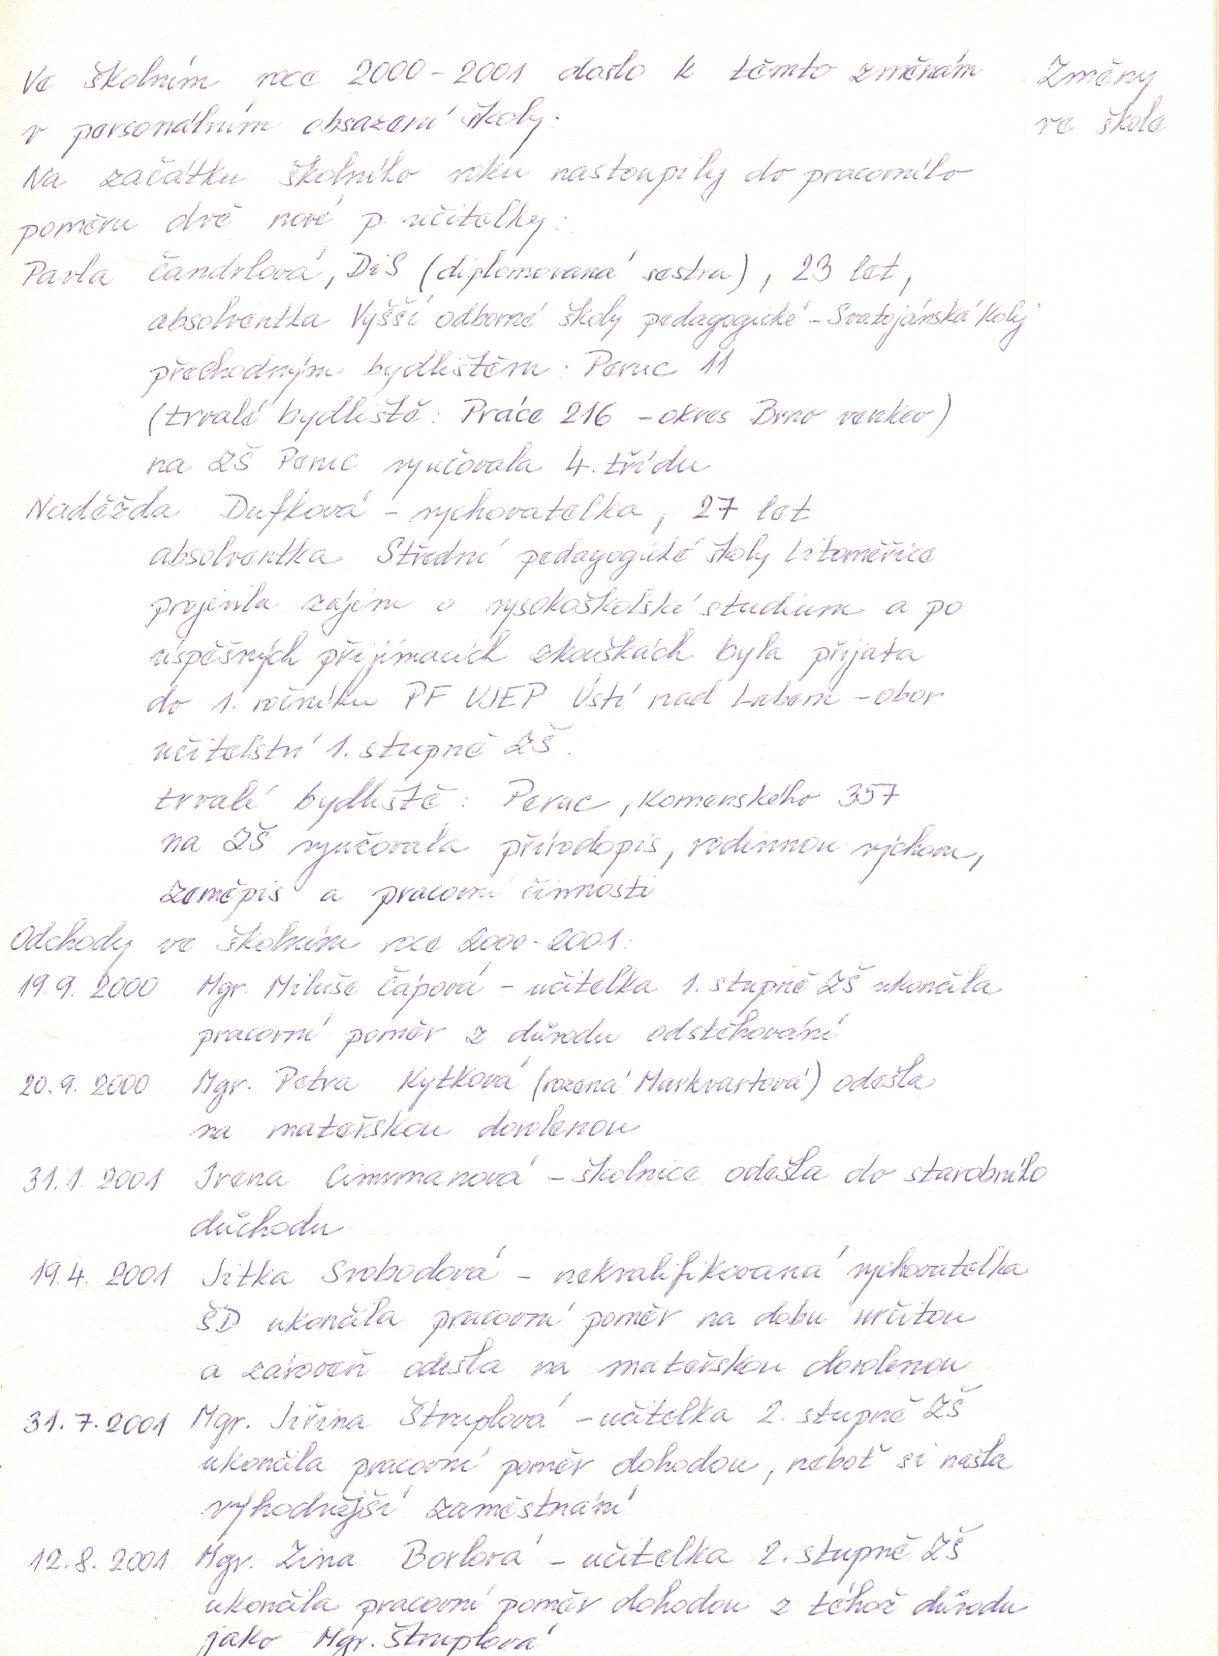 Ve školním roce 2000-2001 došlo k těmto změnám
v personálním obsazení školy:
Změny
ve škole
Na začátku školního roku nastoupily do pracovního
poměru dvě nové p. učitelky:
Pavla Čandrlová, DiS (diplomovaná sestra), 23 let,
absolventka Vyšší odborné školy pedagogické - Svatojánská Kolej
přechodným bydlištěm: Peruc 11
(trvalé bydliště: Prace 216 - okres Brno venkov)
na ZŠ Peruc vyučovala 4. třídu
Naděžda Dufková - vychovatelka, 27 let
absolventka Střední pedagogické školy Litoměřice
projevila zájem o vysokoškolské studium a po
úspěšných přijímacích zkouškách byla přijata
do 1. ročníku PF UJEP Ústí nad Labem - obor
učitelství 1. stupně ZŠ.
trvalé bydliště: Peruc, Komenského 357
na ZŠ vyučovala přírodopis, rodinnou výchovu,
zeměpis a pracovní činnosti
Odchody ve školním roce 2000-2001:
19.9. 2000 Mgr. Miluše Čápová - učitelka 1. stupně ZŠ ukončila
pracovní poměr z důvodu odstěhování
20.9. 2000 Mgr. Petra Kytková (rozená Markvartová) odešla
na mateřskou dovolenou
31.1. 2001 Irena Cimrmanová - školnice odešla do starobního
důchodu
19.4. 2001 Jitka Svobodová - nekvalifikovaná vychovatelka
ŠD ukončila pracovní poměr na dobu určitou
a zároveň odešla na mateřskou dovolenou
31.7.2001 Mgr. Jiřina Štruplová - učitelka 2. stupně ZŠ
ukončila pracovní poměr dohodou, neboť si našla
výhodnější zaměstnání
12.8.2001 Mgr. Zina Borlová - učitelka 2. stupně ZŠ
ukončila pracovní poměr dohodou z téhož důvodu
jako Mgr. Štruplová